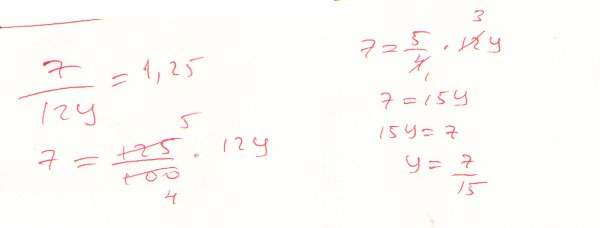 7/12y = 1,25
7 = 125/100 5/4 · 12y
7 = 5/4 · 12y 3 1
7 = 15y
15y = 7
y = 7/15